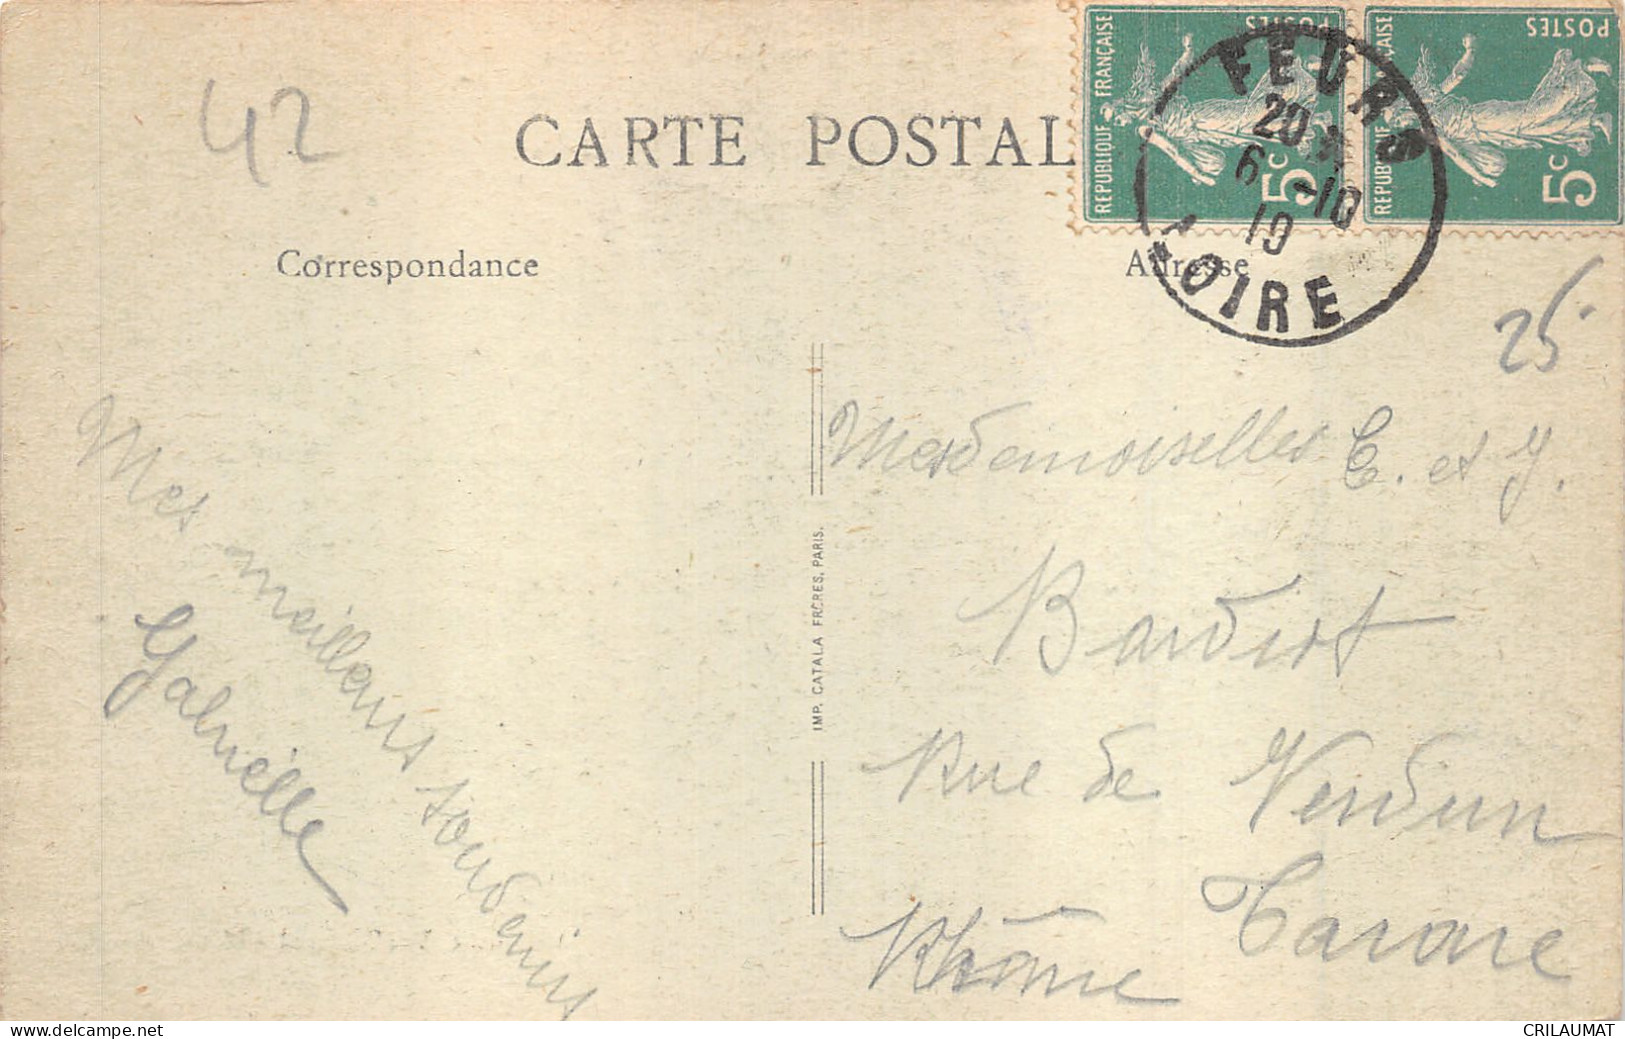 42
CARTE POSTAL
REPUBLIQUE FRANÇAISE
POSTES
5c
REPUBLIQUE FRANÇAISE
POSTES
5c
FEURS
20
6 -10
19
LOIRE
Correspondance
Adresse
25
Mes meilleurs souvenirs
Gabrielle
IMP. CATALA FRÈRES, PARIS.
Mesdemoiselles C. et J.
Bardiot
Rue de Verdun
Tarare
Rhône
delcampe.net
CRILAUMAT